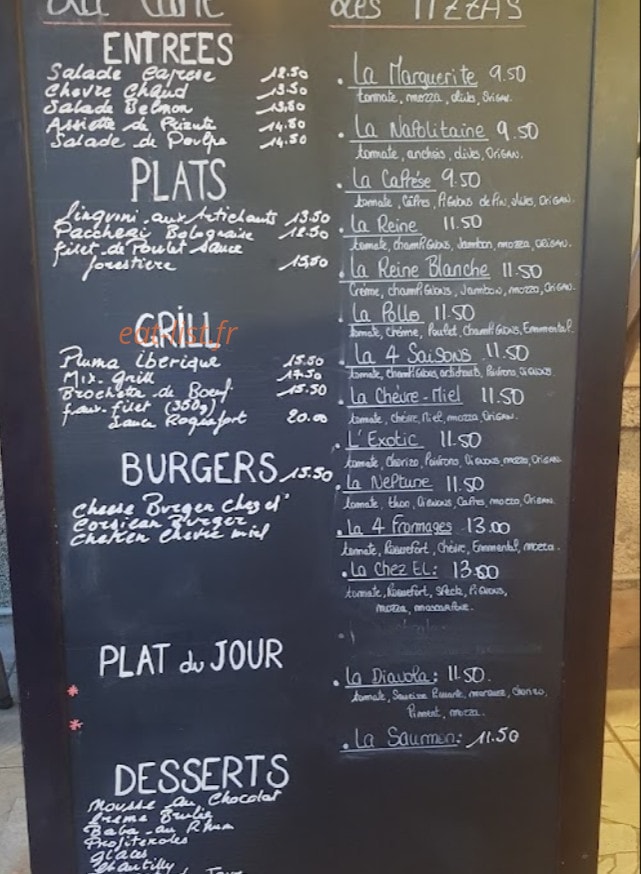 La Carte
ENTREES
Salade Caprese 12.50
Chevre Chaud 13.50
Salade Belmon 13,50
Assiette de 14.50
Salade de Poulpe 14.50
PLATS
Linguini aux Artichauts 13.50
Paccheri Bolognaise 12.50
filet de Poulet sauce
forestiere 15,50
GRiLL
eat-list.fr
Pluma iberique 15.50
Mix. Grill 17.50
Brochette de Boeuf 15.50
faux-filet (350g)
sauce Roquefort 20.00
BURGERS 15.50
Cheese Burger Chez el'
Corsican Burger
Cheken Chevre miel
PLAT du JOUR
*
*
DESSERTS
Mousse au Chocolat
Creme Brulée
Baba au Rhum
Profiteroles
glaces
chantilly
Les PIZZAS
. La Marguerite 9.50
tomate, mozza, olives, Origan.
. La Napolitaine 9.50
tomate, anchois, olives, Origan.
. La Caprése 9.50
tomate, Câpres, Pignons de Pin, olives, Origan.
. La Reine 11.50
tomate, champignons, Jambon, mozza, origan.
. La Reine Blanche 11.50
Crème, champignons, Jambon, mozza, origan.
. La Pollo 11.50
tomate, Crème, Poulet, Champignons, Emmental.
. La 4 Saisons 11.50
tomate, champignons, artichauts, Poivrons, Oignons.
. La Chèvre-Miel 11.50
tomate, chèvre, Miel, mozza, Origan.
. L'Exotic 11.50
tomate, chorizo, Poivrons, Oignons, mozza, Origan.
. La Neptune 11.50
tomate, thon, Oignons, Capres, mozza, Origan.
. La 4 Fromages 13.00
tomate, Roquefort, chèvre, Emmental, mozza.
. La Chez EL: 13.00
tomate, Roquefort, Speck, Pignons,
mozza, mascarpone.
. La Diavola: 11.50.
tomate, Saucisse Piquante, merguez, chorizo,
Piment, mozza.
. La Saumon: 11.50